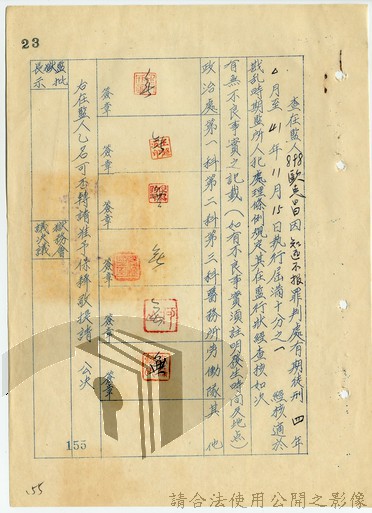 23
查在監人898歐文昌因知匪不报罪判處有期徒刑 四年
月至41年11月15日执行屆滿十分之一 經核適於
戡乱時期監所人犯處理條例規定其在監行狀經查核如次
有無不良事實之記載（如有不良事實須註明發生時間及地点）
政治處第一科第二科第三科醫務所労働隊其他
簽章
簽章
簽章
簽章
簽章
簽章
右在監人乙名可否轉請准予保釋敬提請 公决
獄務會議决議
監獄長批示
155
155
請合法使用公開之影像